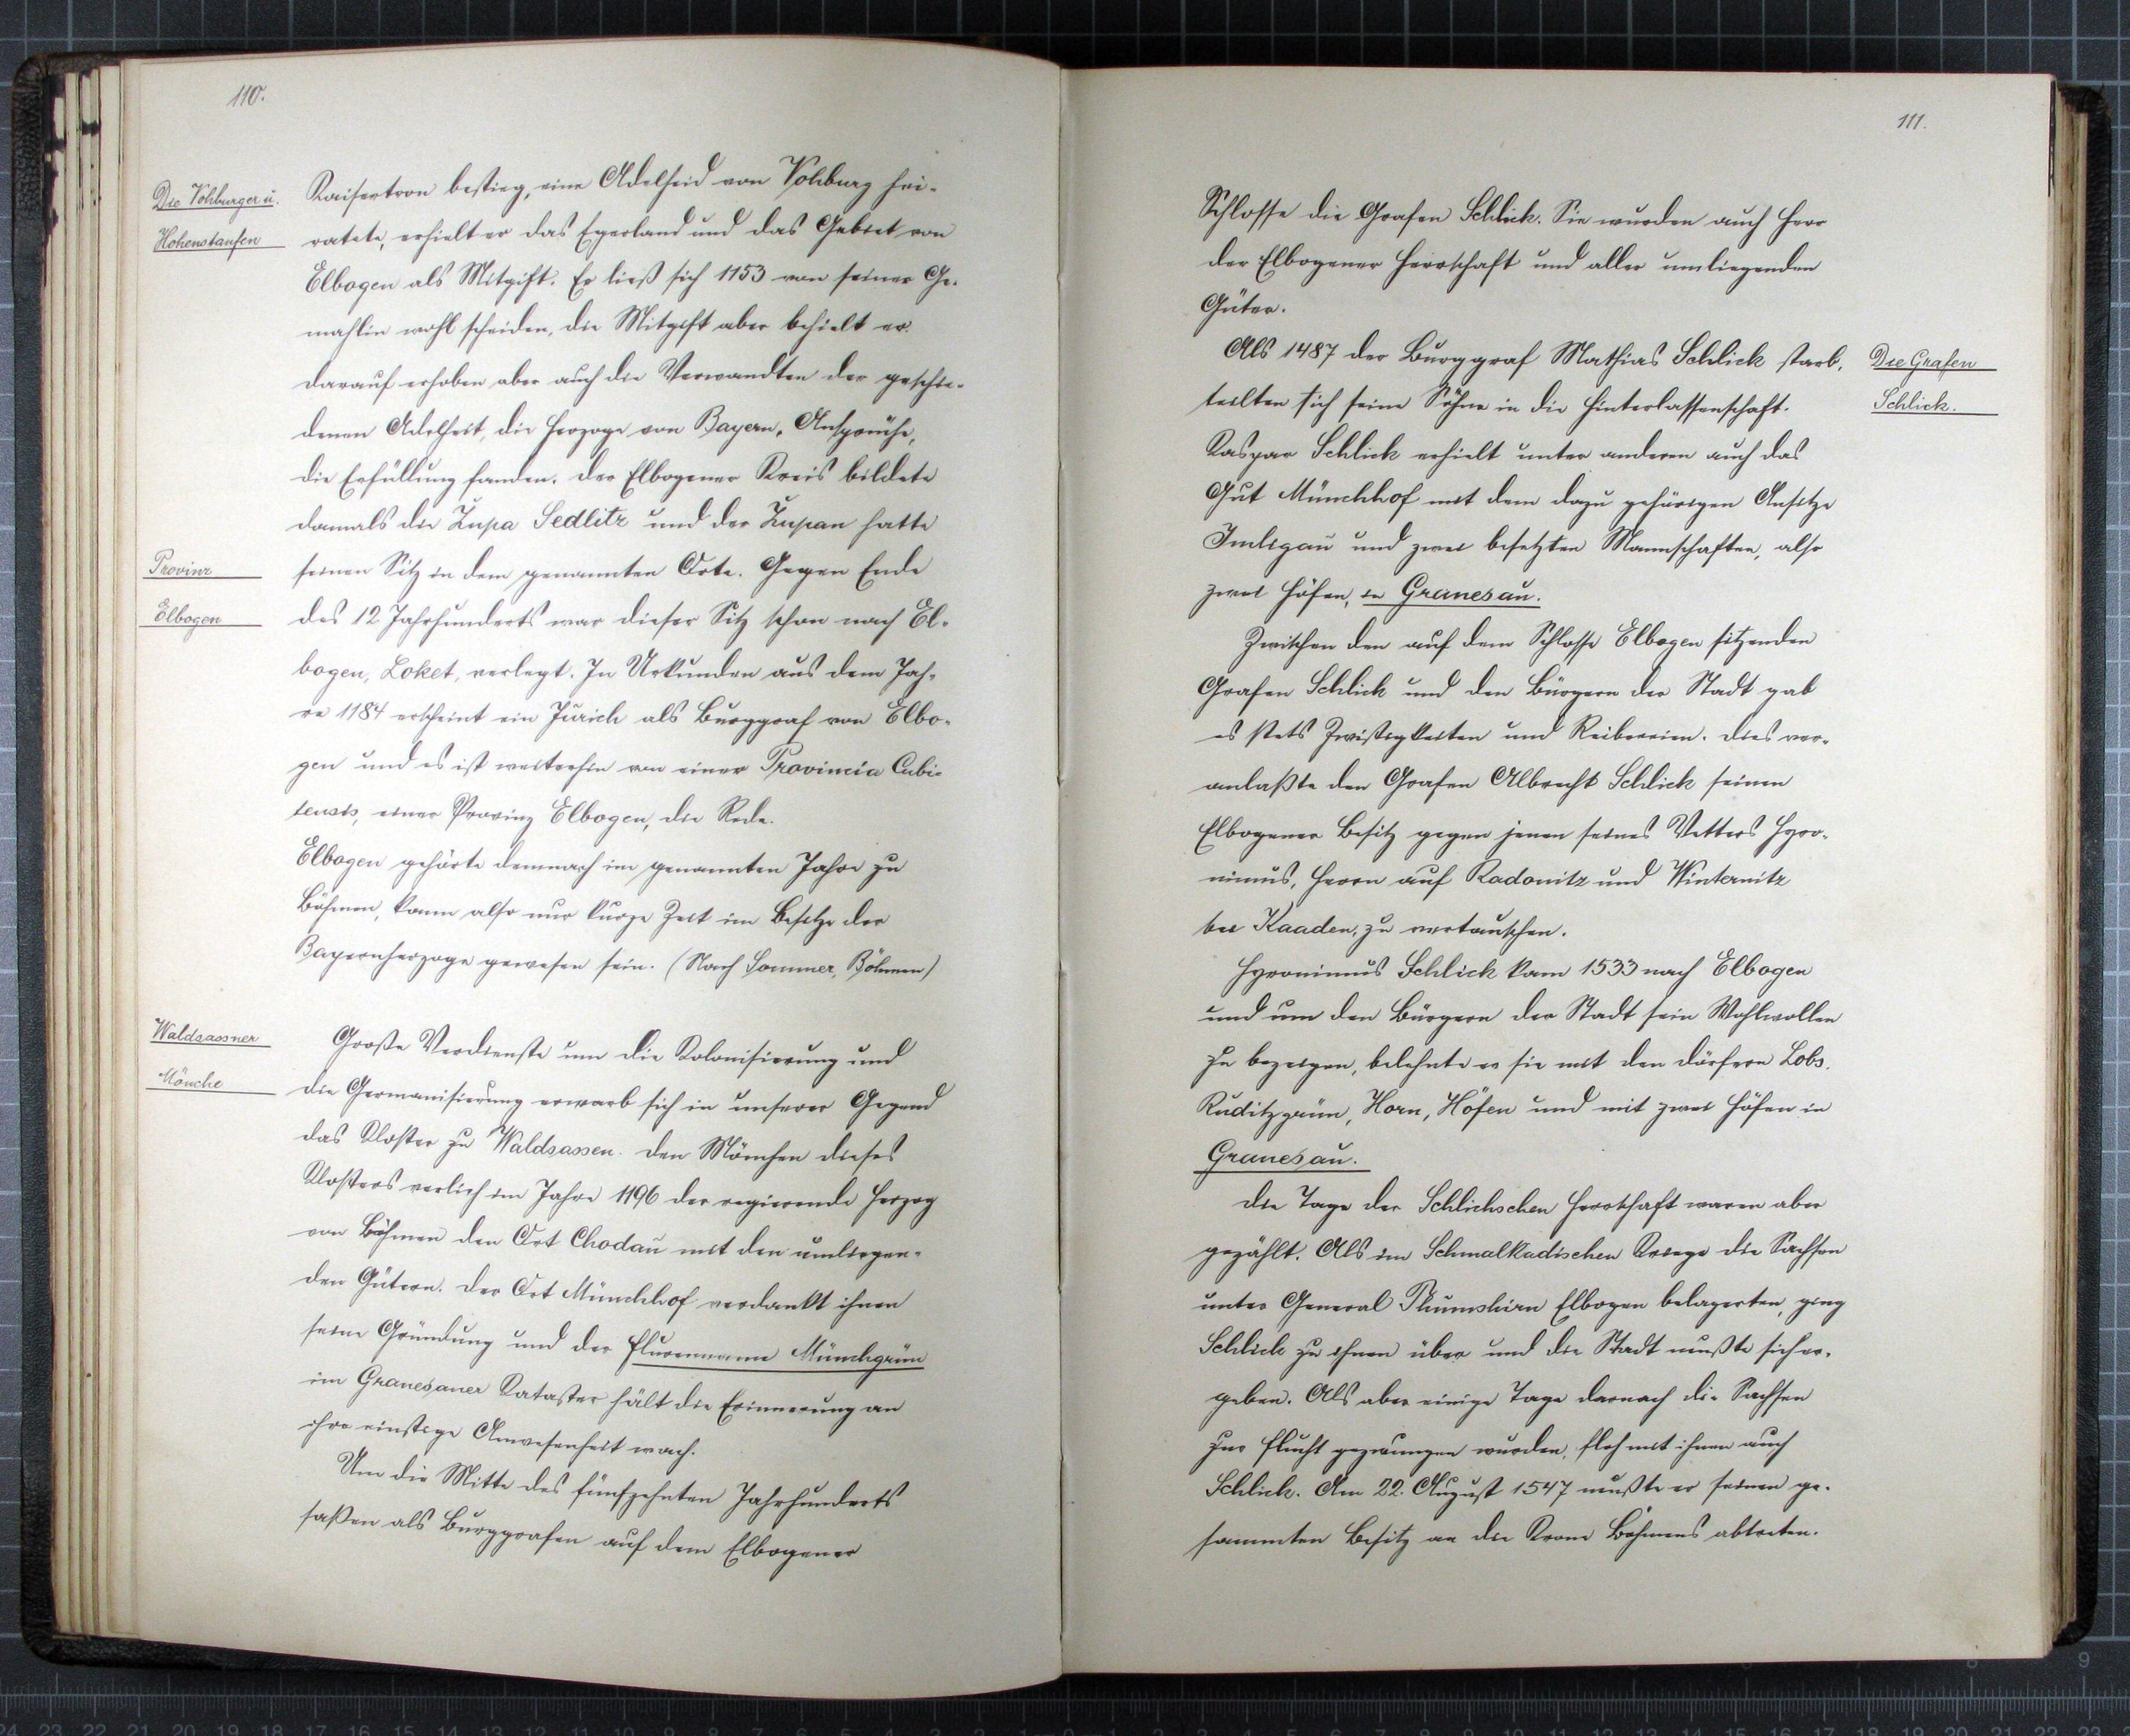 110.
Die Vohburger u.
Hohenstaufen
Kaisertron bestieg, eine Adelheid von Vohburg hei-
ratete, erhielt er das Egerland und das Gebiet von
Elbogen als Mitgift. Er ließ sich 1153 von seiner Ge-
mahlin wohl scheiden, die Mitgift aber behielt er.
Darauf erhoben aber auch die Verwandten der geschie-
denen Adelheit, die Herzoge von Bayern, Ansprüche,
die Erfüllung fanden. Der Elbogener Kreis bildete
damals die Zupa Sedlitz und der Zupan hatte
Provinz
Elbogen
seinen Sitz in dem genannten Orte. Gegen Ende
des 12 Jahrhunderts war dieser Sitz schon nach El-
bogen, Loket, verlegt. In Urkunden aus dem Jah-
re 1184 erscheint ein Jurich als Burggraf von Elbo-
gen und es ist weiterhin von einer Provincia Cubi-
tensis, einer Provinz Elbogen, die Rede.
Elbogen gehörte demnach im genannten Jahre zu
Böhmen, kann also nur kurze Zeit im Besitze der
Bayernherzoge gewesen sein. (Nach Sommer, Böhmen)
Waldsassner
Mönche
Große Verdienste um die Kolonisierung und
die Germanisierung erwarb sich in unserer Gegend
das Kloster zu Waldsassen. Den Mönchen dieses
Klosters verlieh im Jahre 1196 der regierende Herzog
von Böhmen den Ort Chodau mit den umliegen-
den Gütern. Der Ort Münchhof verdankt ihnen
seine Gründung und der Flurenname Münchgrün
im Granesauer Kataster hält die Erinnerung an
ihre einstige Anwesenheit wach.
Um die Mitte des fünfzehnten Jahrhunderts
saßen als Burggrafen auf dem Elbogener
111.
Schlosse die Grafen Schlick. Sie wurden auch Herr
der Elbogener Herrschaft und aller umliegenden
Güter.
Die Grafen
Schlick.
Als 1487 der Burggraf Mathias Schlick starb,
teilten sich seine Söhne in die Hinterlassenschaft.
Kaspar Schlick erhielt unter anderen auch das
Gut Münchhof mit dem dazu gehörigen Ansitze
Imligau und zwei besetzten Mannschaften, also
zwei Höfen, in Granesau.
Zwischen den auf dem Schlosse Elbogen sitzenden
Grafen Schlick und den Bürgern der Stadt gab
es stets Zwistigkeiten und Reibereien. Dies ver-
anlaßte den Grafen Albrecht Schlick seinen
Elbogener Besitz gegen jenen seines Vetters Hyro-
nimus, Herrn auf Radonitz und Winternitz
bei Kaaden, zu vertauschen.
Hyronimus Schlick kam 1533 nach Elbogen
und um den Bürgern der Stadt sein Wohlwollen
zu bezeigen, belehnte er sie mit den Dörfern Lobs,
Ruditzgrün, Horn, Höfen und mit zwei Höfen in
Granesau.
Die Tage der Schlickschen Herrschaft waren aber
gezählt. Als im Schmalkadischen Kriege die Sachsen
unter General Thumshirn Elbogen belagerten, ging
Schlick zu ihnen über und die Stadt mußte sich er-
geben. Als aber einige Tage darnach die Sachsen
zur Flucht gezwungen wurden, floh mit ihnen auch
Schlick. Am 22. August 1547 mußte er seinen ge-
sammten Besitz an die Krone Böhmens abtreten.